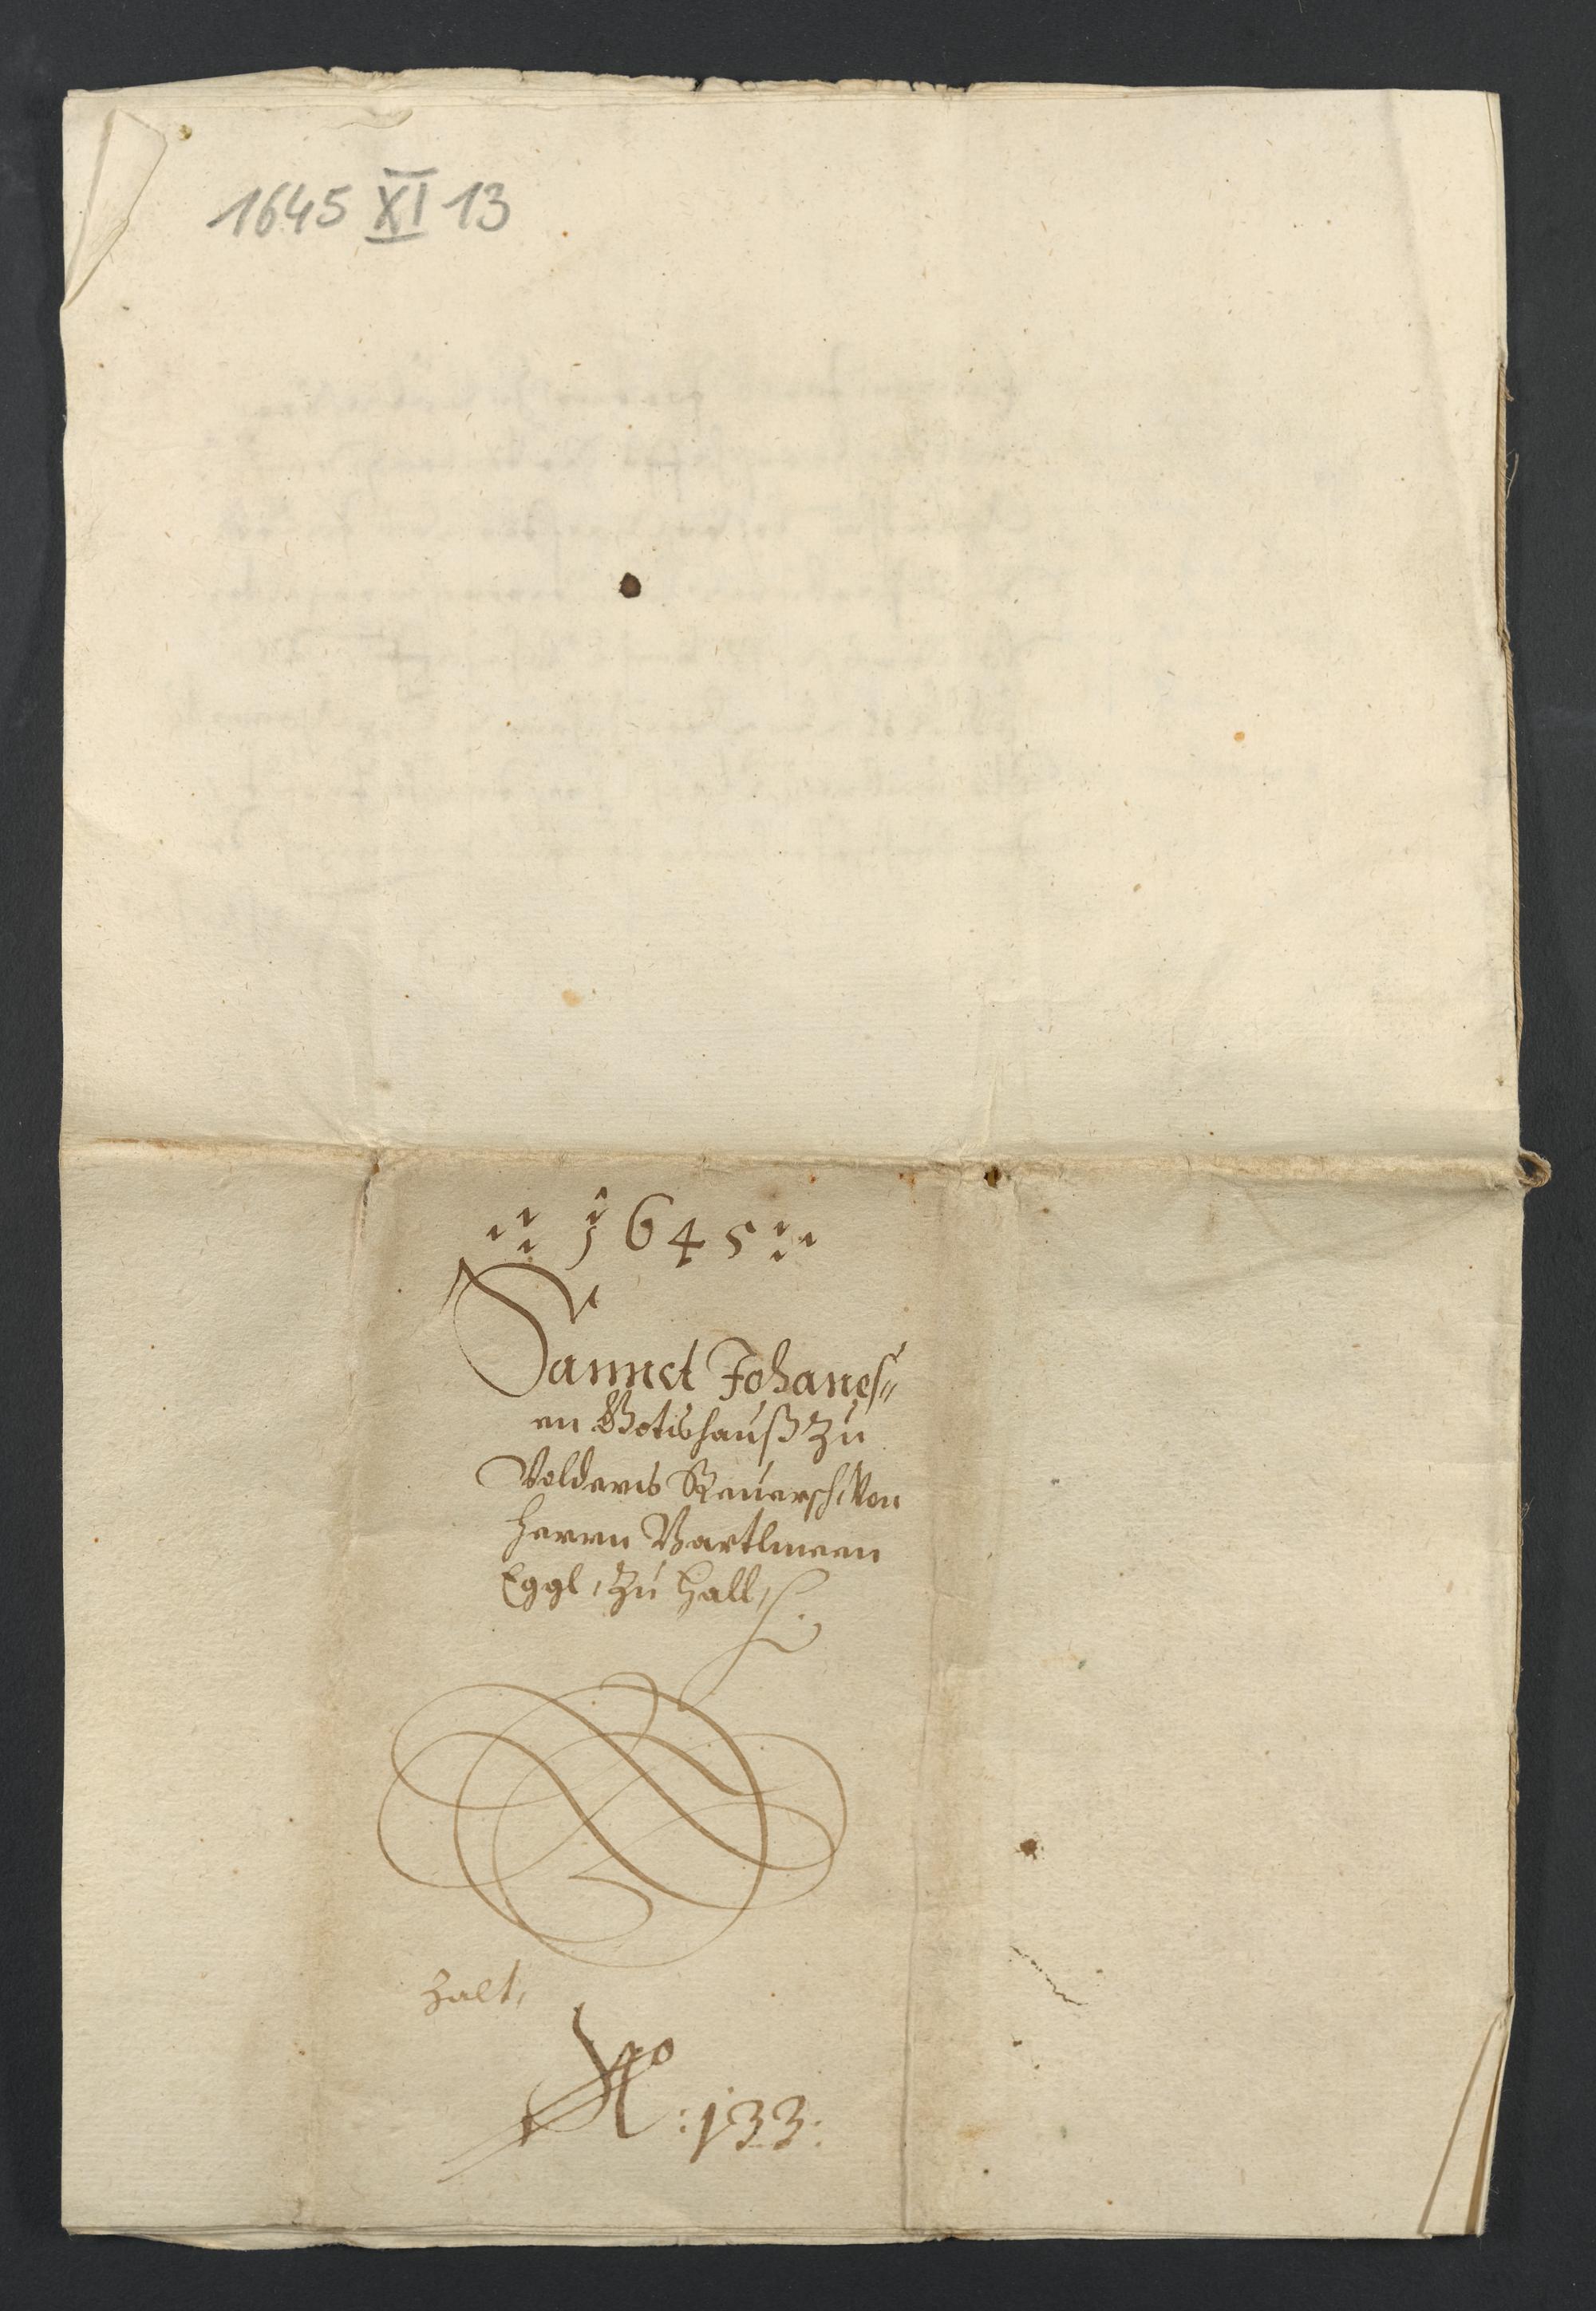 1645 XI 13
1645
Sannct Johanes=
en Gotshauß zu
Volders Reuersch Von
Herrn Bartlmeen
Eggl, zu Hall,
zalt,
No: 133: